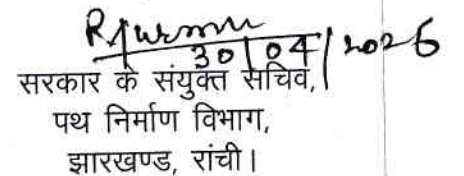 30/04/2026
सरकार के संयुक्त सचिव,
पथ निर्माण विभाग,
झारखण्ड, रांची।